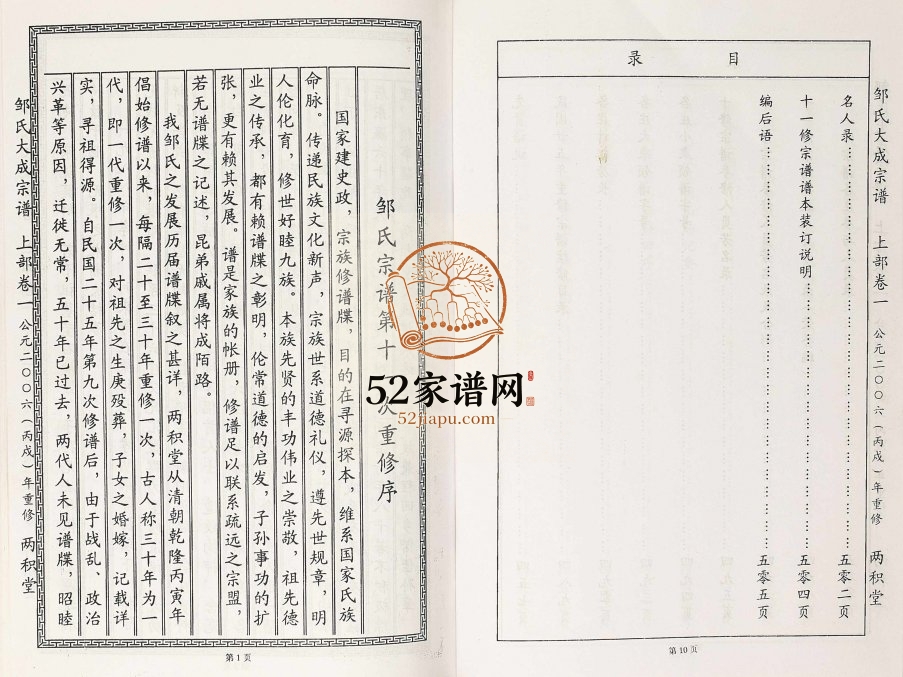 邹氏大成宗谱 上部卷一 公元二〇〇六（丙戌）年重修 两积堂
目录
名人录……五零二页
十一修宗谱谱本装订说明……五零四页
编后语……五零五页
第10页
邹氏宗谱第十 次重修序
国家建史政，宗族修谱牒，目的在寻源探本，维系国家氏族
命脉。传递民族文化新声，宗族世系道德礼仪，遵先世规章，明
人伦化育，修世好睦九族。本族先贤的丰功伟业之崇敬，祖先德
业之传承，都有赖谱牒之彰明，伦常道德的启发，子孙事功的扩
张，更有赖其发展。谱是家族的帐册，修谱足以联系疏远之宗盟，
若无谱牒之记述，昆弟戚属将成陌路。
我邹氏之发展历届谱牒叙之甚详，两积堂从清朝乾隆丙寅年
倡始修谱以来，每隔二十至三十年重修一次，古人称三十年为一
代，即一代重修一次，对祖先之生庚殁葬，子女之婚嫁，记载详
实，寻祖得源。自民国二十五年第九次修谱后，由于战乱、政治
兴革等原因，迁徙无常，五十年已过去，两代人未见谱牒，昭睦
邹氏大成宗谱 上部卷一 公元二〇〇六（丙戌）年重修 两积堂
第1页
52家谱网
52jiapu.com